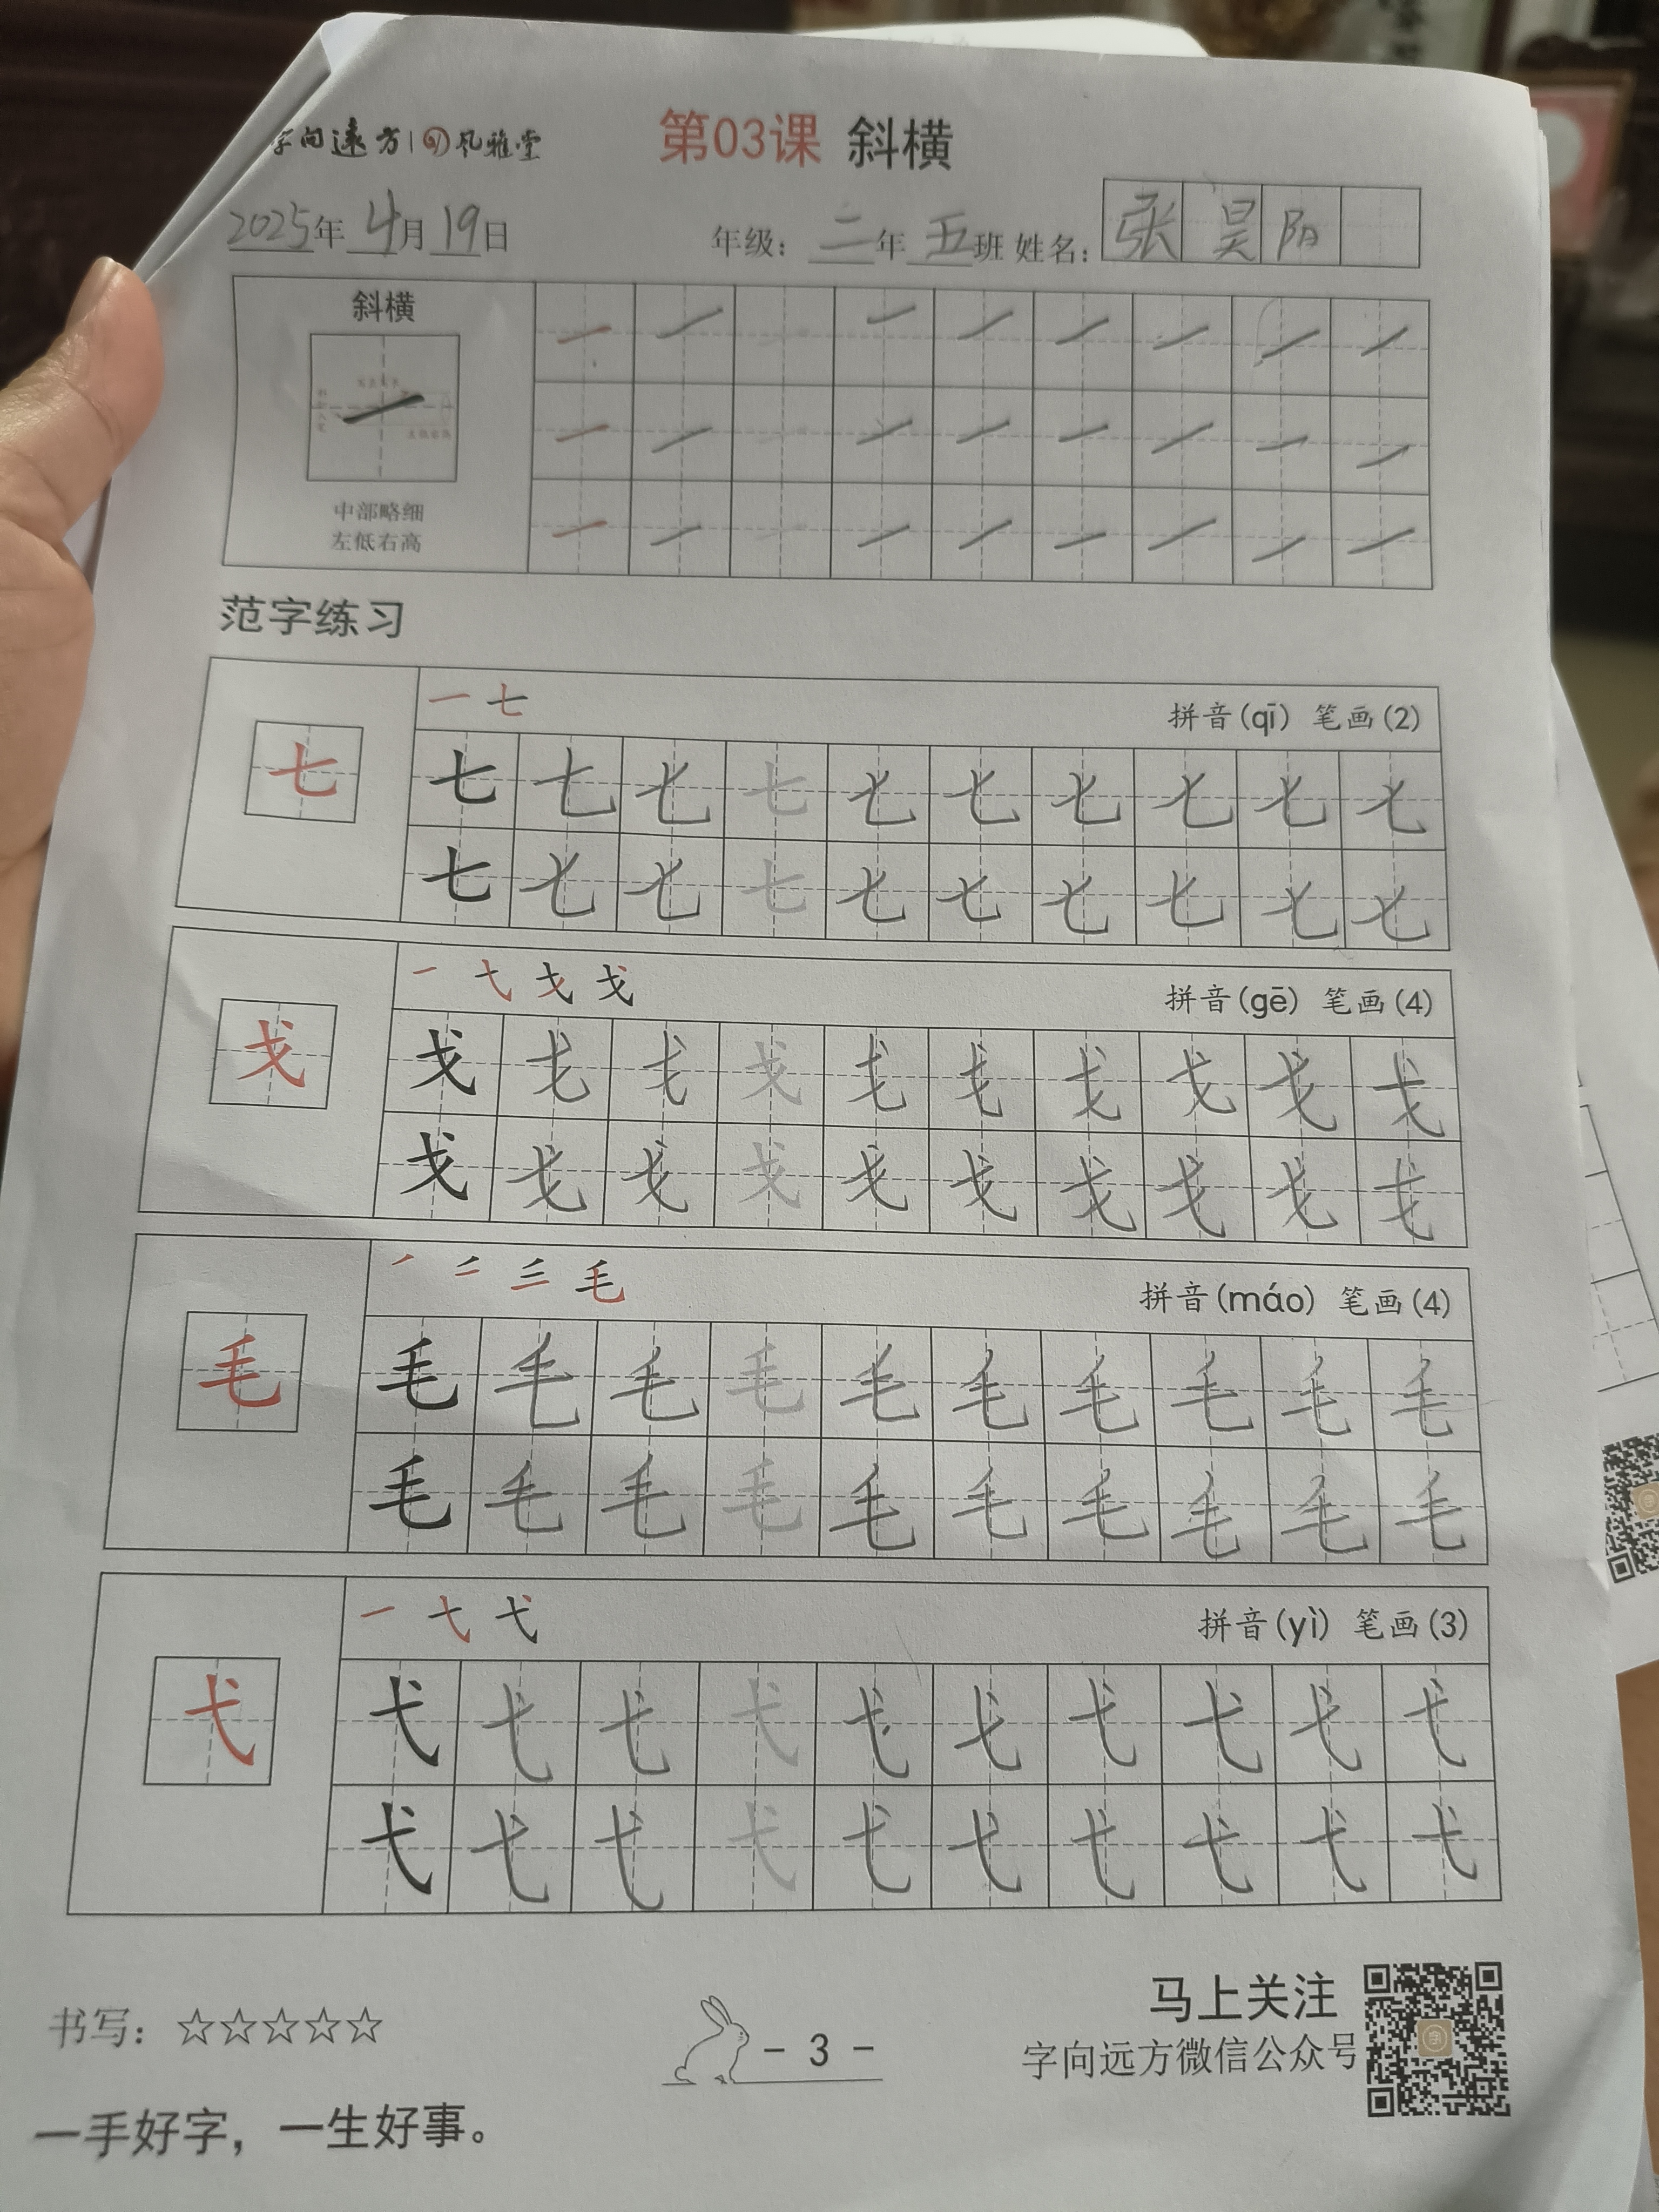 字向遠方 | 风雅堂
第03课 斜横
2025年 4月 19日 年级: 二年 五班 姓名: 张昊阳
斜横
中部略细
左低右高
范字练习
一 七 拼音(qī) 笔画(2)
七 七 七 七 七 七 七 七 七 七 七
七 七 七 七 七 七 七 七 七 七
一 弋 戈 拼音(gē) 笔画(4)
戈 戈 戈 戈 戈 戈 戈 戈 戈 戈 戈
戈 戈 戈 戈 戈 戈 戈 戈 戈 戈
毛 拼音(máo) 笔画(4)
毛 毛 毛 毛 毛 毛 毛 毛 毛 毛 毛
毛 毛 毛 毛 毛 毛 毛 毛 毛 毛
一 弋 拼音(yì) 笔画(3)
弋 弋 弋 弋 弋 弋 弋 弋 弋 弋 弋
弋 弋 弋 弋 弋 弋 弋 弋 弋 弋
书写: ☆☆☆☆☆
- 3 -
马上关注
字向远方微信公众号
一手好字，一生好事。